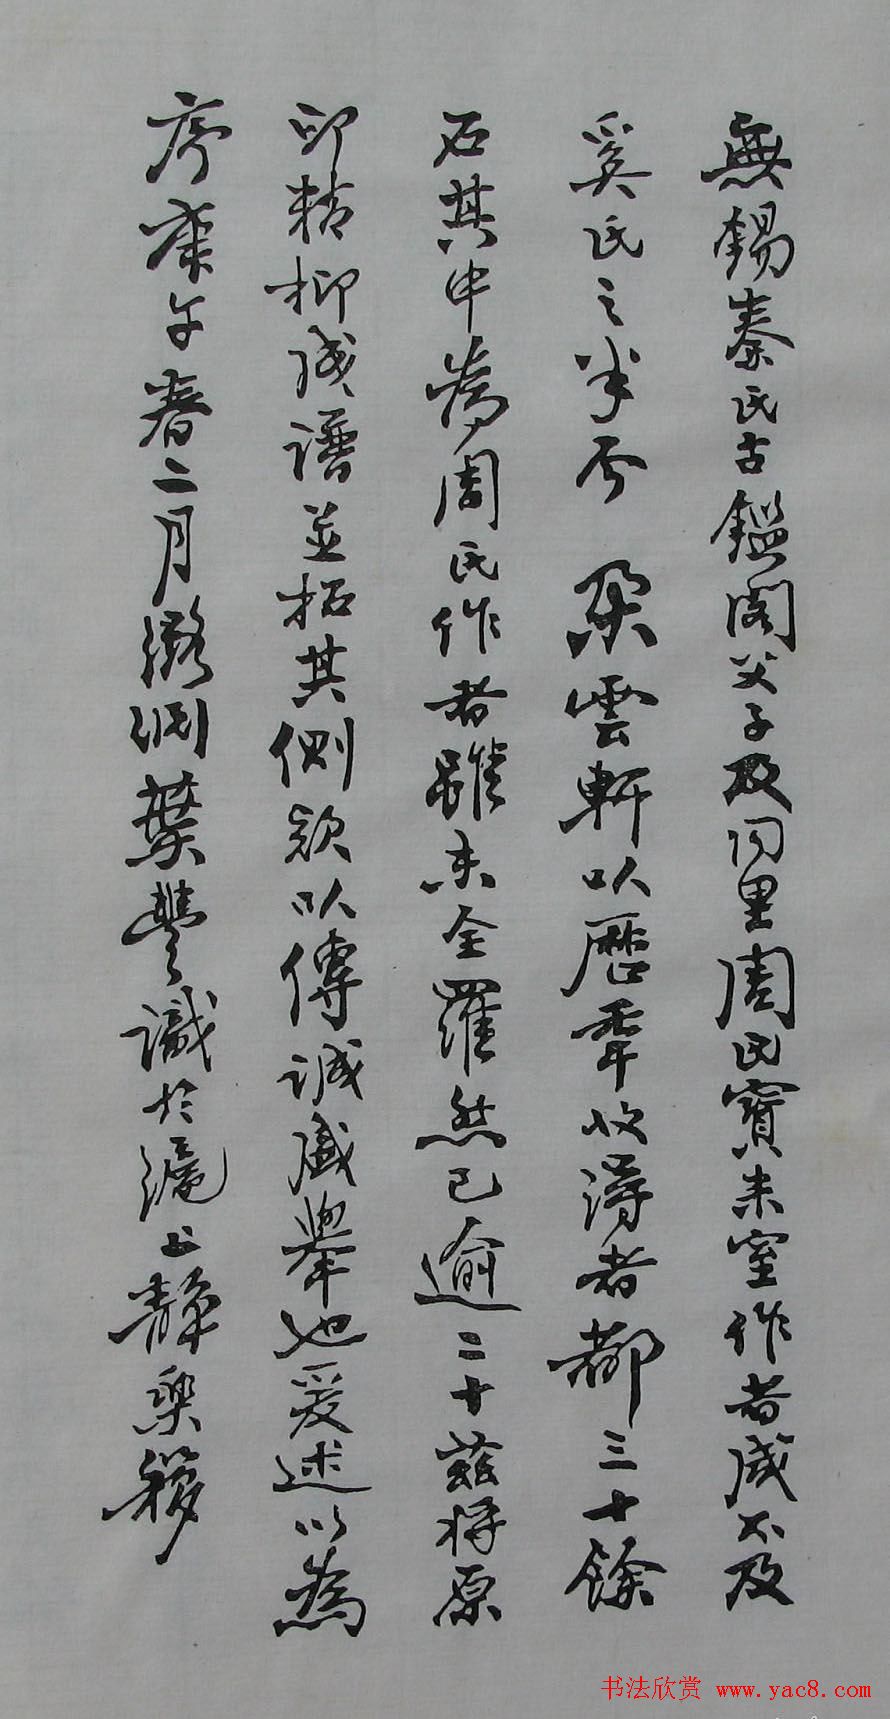 無錫秦氏古鑑閣父子及同里周氏寶米室作者咸不及
奚氏之半今朵雲軒以歷年收得者都三十餘
石其中為周氏作者雖未全羅然已逾二十茲將原
印精柳成譜並拓其側款以傳誠盛舉也爰述以為
序庚午春二月潞淵葉豐識於滬上靜樂簃
书法欣赏 www.yac8.com